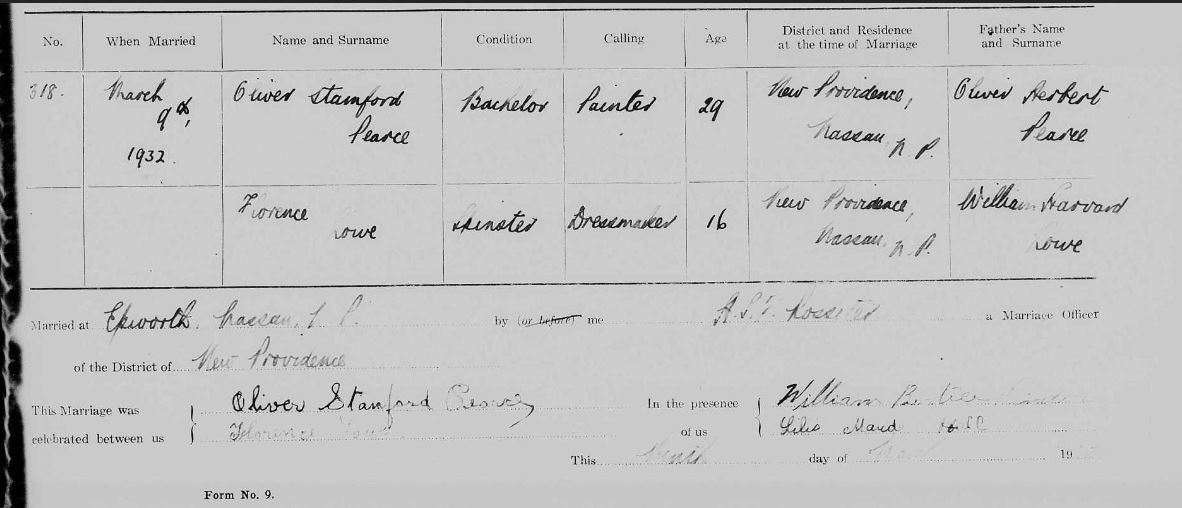 No. When Married Name and Surname Condition Calling Age District and Residence at the time of Marriage Father's Name and Surname
318. March 9th, 1932. Oliver Stamford Pearce Bachelor Painter 29 New Providence, Nassau, N.P. Oliver Herbert Pearce
Florence Lowe Spinster Dressmaker 16 New Providence, Nassau, N.P. William Harvard Lowe
Married at Epworth, Nassau, P. by (or before) me a Marriage Officer
of the District of New Providence
This Marriage was celebrated between us Oliver Stamford Pearce
Florence
In the presence of us William
Maud
This Ninth day of March 19
Form No. 9.